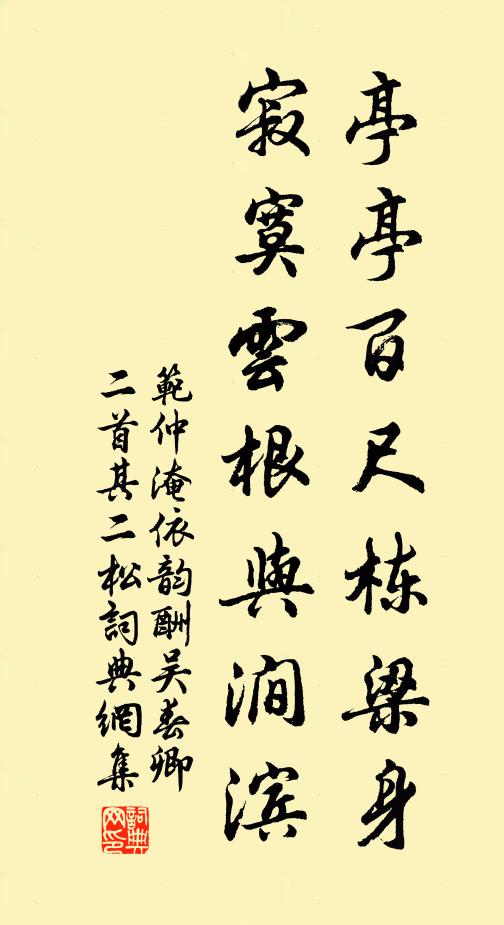 亭亭百尺栋梁身
寂寞雲根與涧滨
範仲淹依韵酬吴春卿
二首其二松詞典網集
詞典网印